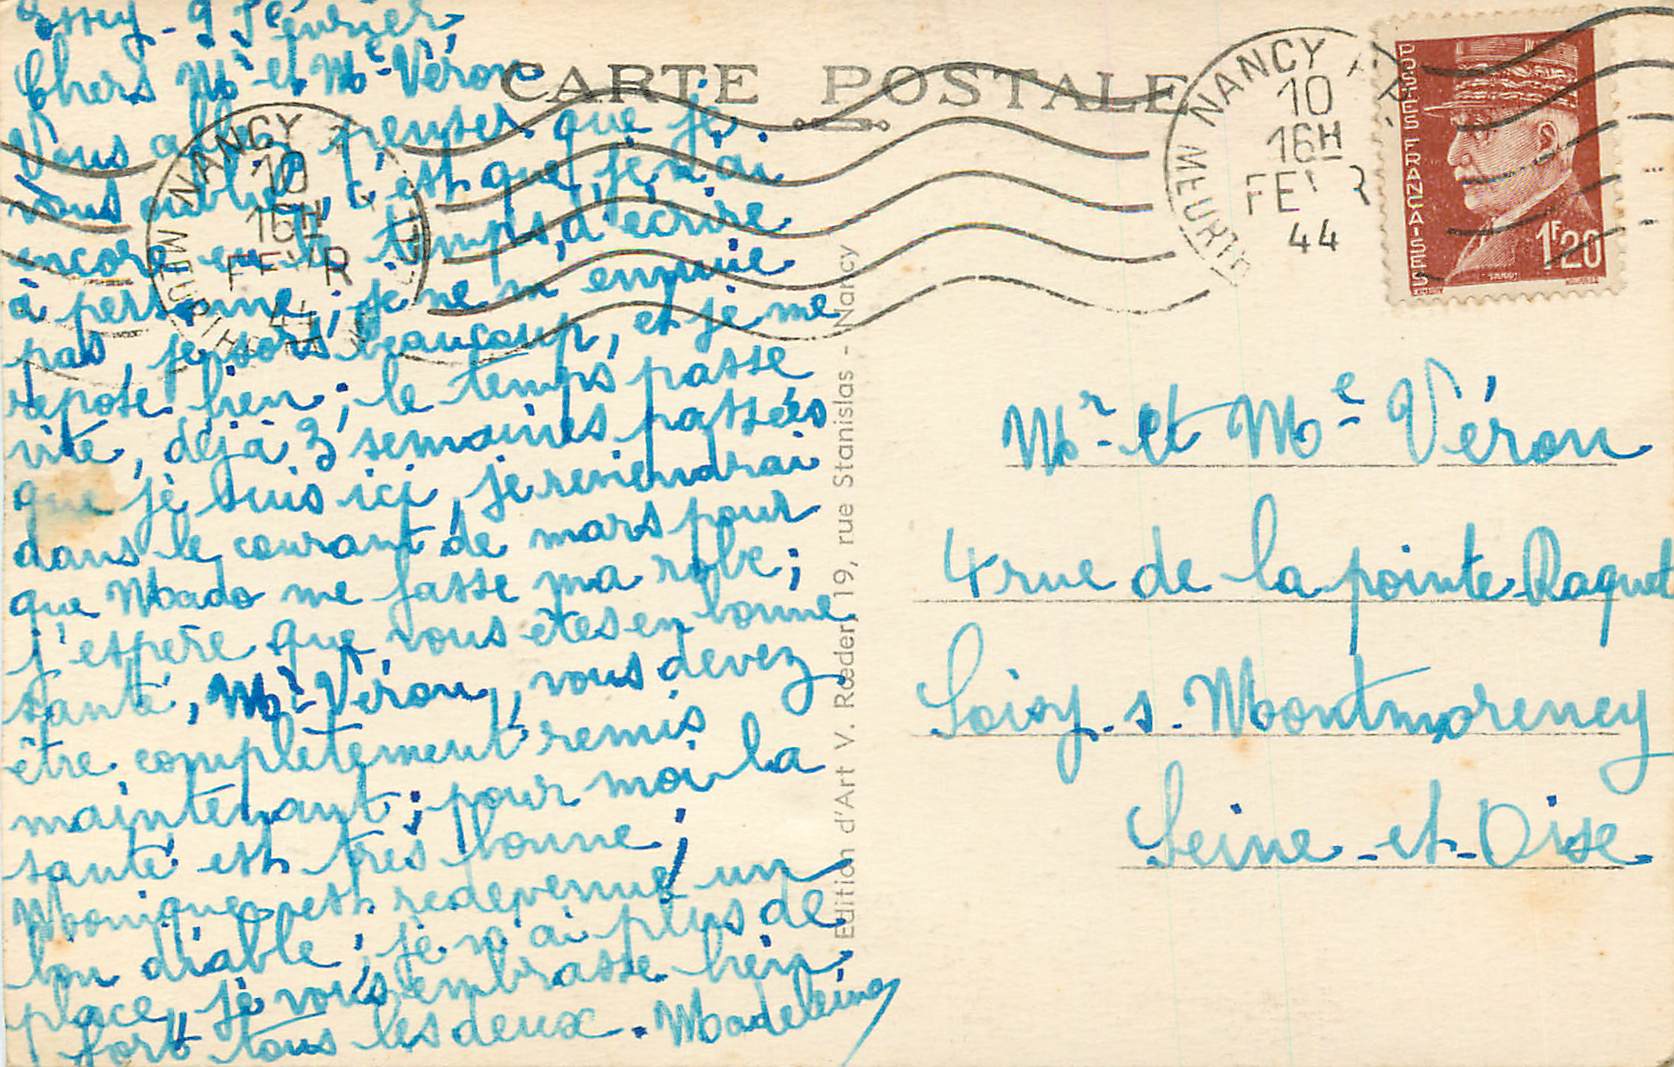 Essey - 9 Février,
Chers Mr et Me Véron
Vous allez penser que je
vous oublie, c'est que je n'ai
encore eu le temps, d'écrire
à personne; je ne m ennuie
pas, je sors beaucoup, et je me
repose bien; le temps passe
vite, déjà 3 semaines passées
que je suis ici, je reviendrai
dans le courant de mars pour
que Mado me fasse ma robe;
j'espère que vous êtes en bonne
santé, Mr Véron, vous devez
être complètement remis
maintenant; pour moi la
santé est très bonne;
Monique est redevenue un
bon diable; je n'ai plus de
place, je vous embrasse bien
fort tous les deux. Madeleine
CARTE POSTALE
Edition d'Art V. Rœder, 19, rue Stanislas - Nancy
NANCY
10
16H
FEVR
44
NANCY
10
16H
FEV R
44
POSTES FRANCAISES
1F20
Mr et Me Véron
4 rue de la pointe Raquet
Soisy - s - Montmorency
Seine - et - Oise